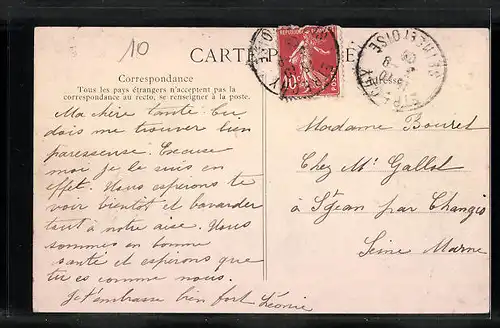 10
CARTE POSTALE
Correspondance
Tous les pays étrangers n'acceptent pas la
correspondance au recto, se renseigner à la poste.
Ma chère tante. Tu
dois me trouver bien
paresseuse. Excuse
moi je le suis en
effet. Nous espérons te
voir bientôt et bavarder
tant à notre aise. Nous
sommes en bonne
santé et espérons que
tu es comme nous.
Je t'embrasse bien fort Léonie
10c
SEINE ET OISE
Madame Bouret
Chez Mr Gallot
à St Jean par Changis
Seine Marne